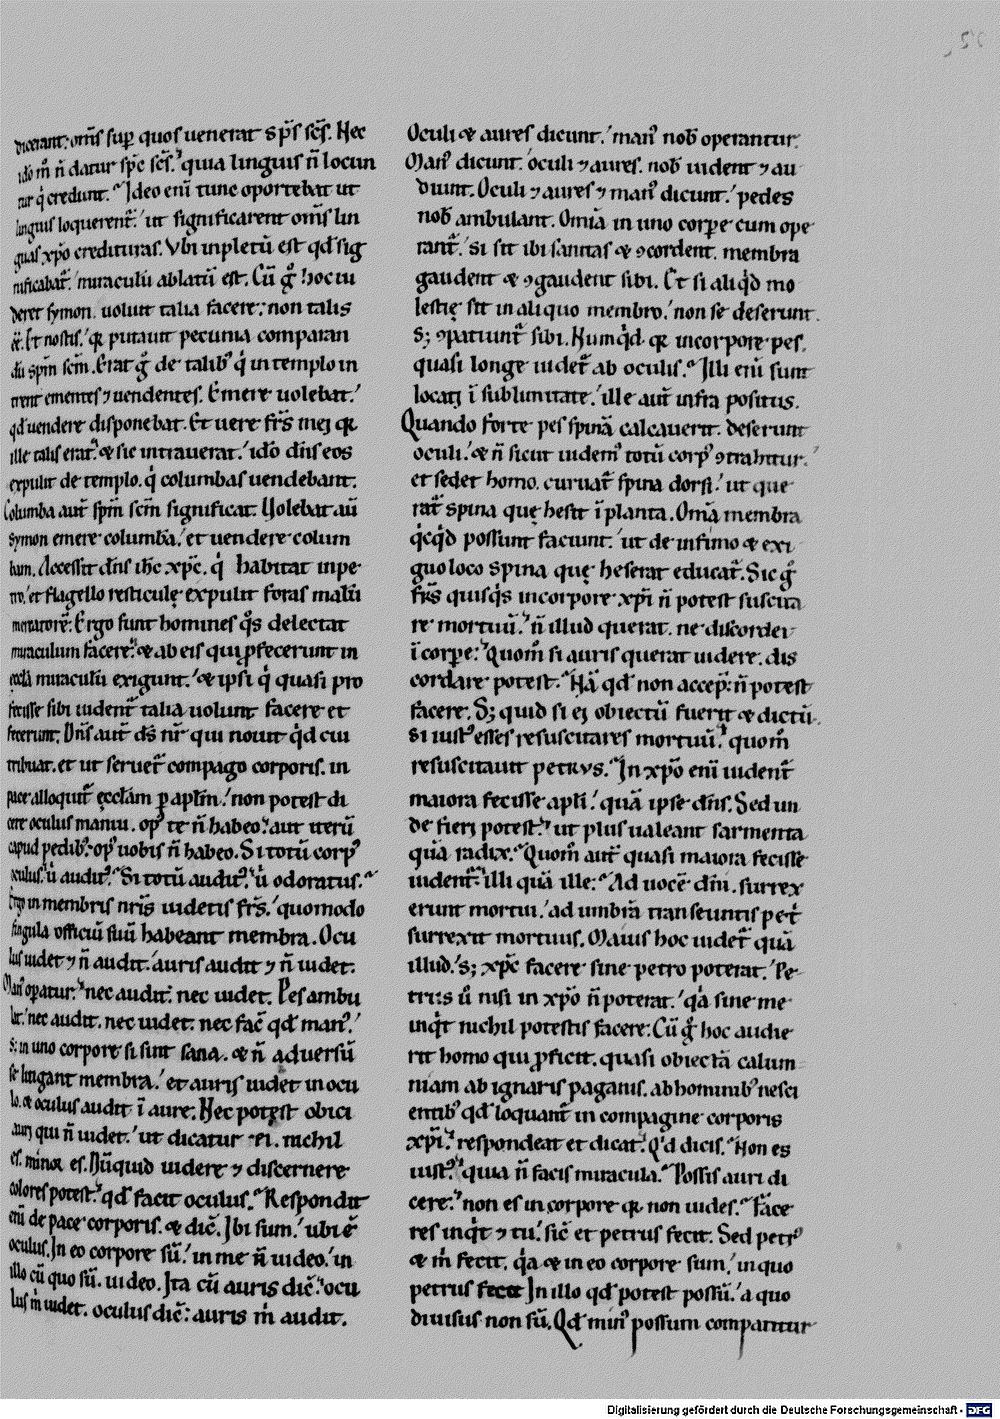 dicerant: om̅s sup quos uenerat sp̅s sc̅s. Hec
ido̅ m̊ n̅ datur sp̅c sc̅s. quia linguis n̅ locun
tur q̇ credunt. Ideo eni̅ tunc oportebat ut
linguis loquerent̅. ut significarent om̅s lin
guas xp̅o credituras. Vbi inpletu̅ est qd̅ sig
nificabat̅. miraculu̅ ablatu̅ est. Cu̅ g̊ hoc ui
deret symon. uoluit talia facere: non talis
e̅e. Et nostis. qꝛ putauit pecunia comparan
du̅ sp̅m sc̅m. Erat g̊ de talibꝰ q̇ in templo in
trent ementes ⁊ uendentes. Emere uolebat.
qd̅ uendere disponebat. Et uere fr̅s mei qꝛ
ille talis erat. & sic intrauerat. ido̅ dn̅s eos
expulit de templo. q̇ columbas uendebant.
Columba aut̅ sp̅m sc̅m significat. Uolebat au̅
symon emere columba̅. et uendere colum
bam. Accessit dn̅s ih̅c xp̅c. q̇ habitat inpe
tro. et flagello resticulę expulit foras malu̅
mercatore̅. Ergo sunt homines q̊s delectat
miraculum facere. & ab eis qui ꝓfecerunt in
ęccla̅ miraculu̅ exigunt. & ipsi q̇ quasi pro
fecisse sibi uident̅ talia uolunt facere et
fecerunt. Dn̅s aut̅ ds̅ nr̅ qui nouit qd̅ cui
tribuat. et ut seruet̅ compago corporis. in
pace alloquit̅ ęccl̅am ꝑ apl̅m. non potest di
cere oculus manui. opꝰ te n̅ habeo. aut iteru̅
capud pedibꝰ. opꝰ uobis n̅ habeo. Si totu̅ corpꝰ
oculus. u̇ auditꝰ. Si totu̅ auditꝰ. u̇ odoratus.
Ergo in membris nr̅is uidetis fr̅s. quomodo
singula officiu̅ suu̅ habeant membra. Ocu
lus uidet ⁊ n̅ audit. auris audit ⁊ n̅ uidet.
Manꝰ opatur. nec audit. nec uidet. Pes ambu
lat. nec audit. nec uidet. nec fac̅ qd̅ manꝰ.
S; in uno corpore si sint sana. & n̅ aduersu̅
se litigant membra. et auris uidet in ocu
lo. & oculus audit i̅ aure. Nec potest obici
auri qui n̅ uidet. ut dicatur ei. nichil
es. minor es. Nu̅quid uidere ⁊ discernere
colores potest. qd̅ facit oculus. Respondit
eni̅ de pace corporis. & dic̅. Ibi sum. ubi e̅
oculus. In eo corpore su̅. in me n̅ uideo. in
illo cu̅ quo su̅. uideo. Ita cu̅ auris dic̅. ocu
lus m̊ uidet. oculus dic̅: auris m̊ audit.
Oculi & aures dicunt. manꝰ nob̅ operantur.
Manꝰ dicunt. oculi ⁊ aures. nob̅ uident ⁊ au
diunt. Oculi ⁊ aures ⁊ manꝰ dicunt. pedes
nob̅ ambulant. Omia̅ in uno corpe cum ope
rant̅. si sit ibi sanitas & ꝯcordent. membra
gaudent & ꝯgaudent sibi. Et si aliq̇d mo
lestię sit in aliquo membro. non se deserunt.
S; ꝯpatiunt̅ sibi. Numq̇d qꝛ incorpore pes.
quasi longe uidet̅ ab oculis. Illi eni̅ sunt
locati i̅ sublimitate. ille aut̅ infra positus.
Quando forte pes spina̅ calcauerit. deserunt
oculi. & n̅ sicut uidemꝰ totu̅ corpꝰ ꝯtrahitur.
et sedet homo. curuat̅ spina dorsi. ut que
rat̅ spina quę hesit i̅ planta. Omia̅ membra
q̇cq̇d possunt faciunt. ut de infimo & exi
guo loco spina quę heserat educat̅. Sic g̊
fr̅s quisq̇s incorpore xp̅i n̅ potest suscita
re mortuu̅. n̅ illud querat. ne discordet
i̅ corpe. Quom̊ si auris querat uidere. dis
cordare potest. Na̅ qd̅ non accep̅. n̅ potest
facere. S; quid si ei obiectu̅ fuerit & dictu̅.
si iustꝰ esses resuscitares mortuu̅. quom̊
resuscitauit petrus. In xp̅o eni̅ uident̅
maiora fecisse apl̅i. qua̅ ipse dn̅s. Sed un
de fieri potest. ut plus ualeant sarmenta
qua̅ radix. Quom̊ aut̅ quasi maiora fecisse
uident̅. illi qua̅ ille. Ad uoce̅ dn̅i. surrex
erunt mortui. ad umbra̅ transeuntis pet̊
surrexit mortuus. Maius hoc uidet̅ qua̅
illud. S; xp̅c facere sine petro poterat. Pe
trus u̇ nisi in xp̅o n̅ poterat. q̇a sine me
inq̇t nichil potestis facere. Cu̅ g̊ hoc audie
rit homo qui ꝓficit. quasi obiecta̅ calum
niam ab ignaris paganis. ab hominibꝰ nesci
entibꝰ qd̅ loquant̅ in compagine corporis
xp̅i. respondeat et dicat. Qd̅ dicis. Non es
iustꝰ. quia n̅ facis miracula. Possis auri di
cere. non es in corpore qꝛ non uides. Face
res inq̇t ⁊ tu. sic̅ et petrus fecit. Sed petrꝰ
& m̊ fecit. q̇a & in eo corpore sum. in quo
petrus fecit In illo qd̅ potest possu̅. a quo
diuisus non su̅. Qd̅ minꝰ possum compatitur
Digitalisierung gefördert durch die Deutsche Forschungsgemeinschaft - DFG